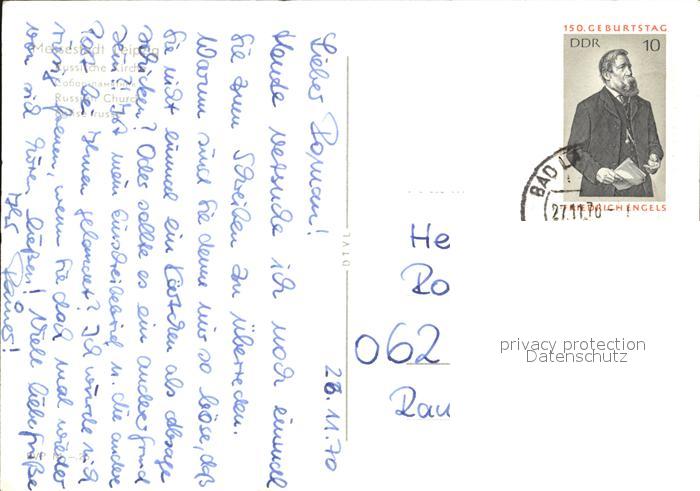 Lieber Roman!
28.11.70
Heute versuche ich noch einmal
Sie zum Schreiben zu überreden.
Warum sind Sie denn mir so böse, daß
Sie nicht einmal ein Kärtchen als absage
schicken? Oder sollte es ein anderer Grund
sein? Ist mein Einschreibebrief u. die andere
Post bei Ihnen gelandet? Ich würde mich
riesig freuen, wenn Sie doch mal wieder
von sich hören ließen! Viele liebe Grüße
Ihr
Rainer!
Messestadt Leipzig
Russische Kirche
Russian Church
He
Ro
062
Rau
150. GEBURTSTAG
DDR 10
FRIEDRICH ENGELS
BAD
27.11.70
privacy protection
Datenschutz